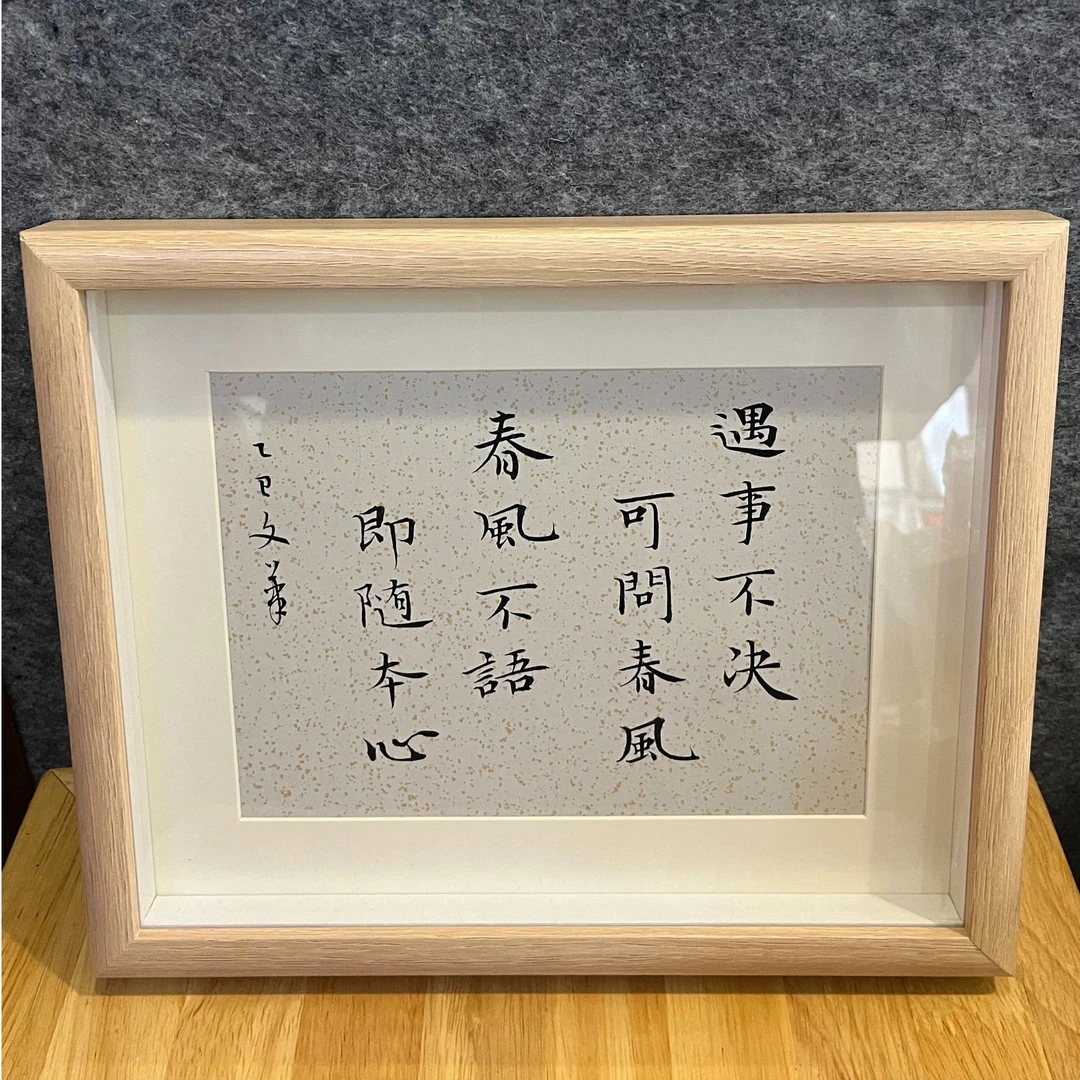 遇事不决
可問春風
春風不語
即随本心
乙巳文華